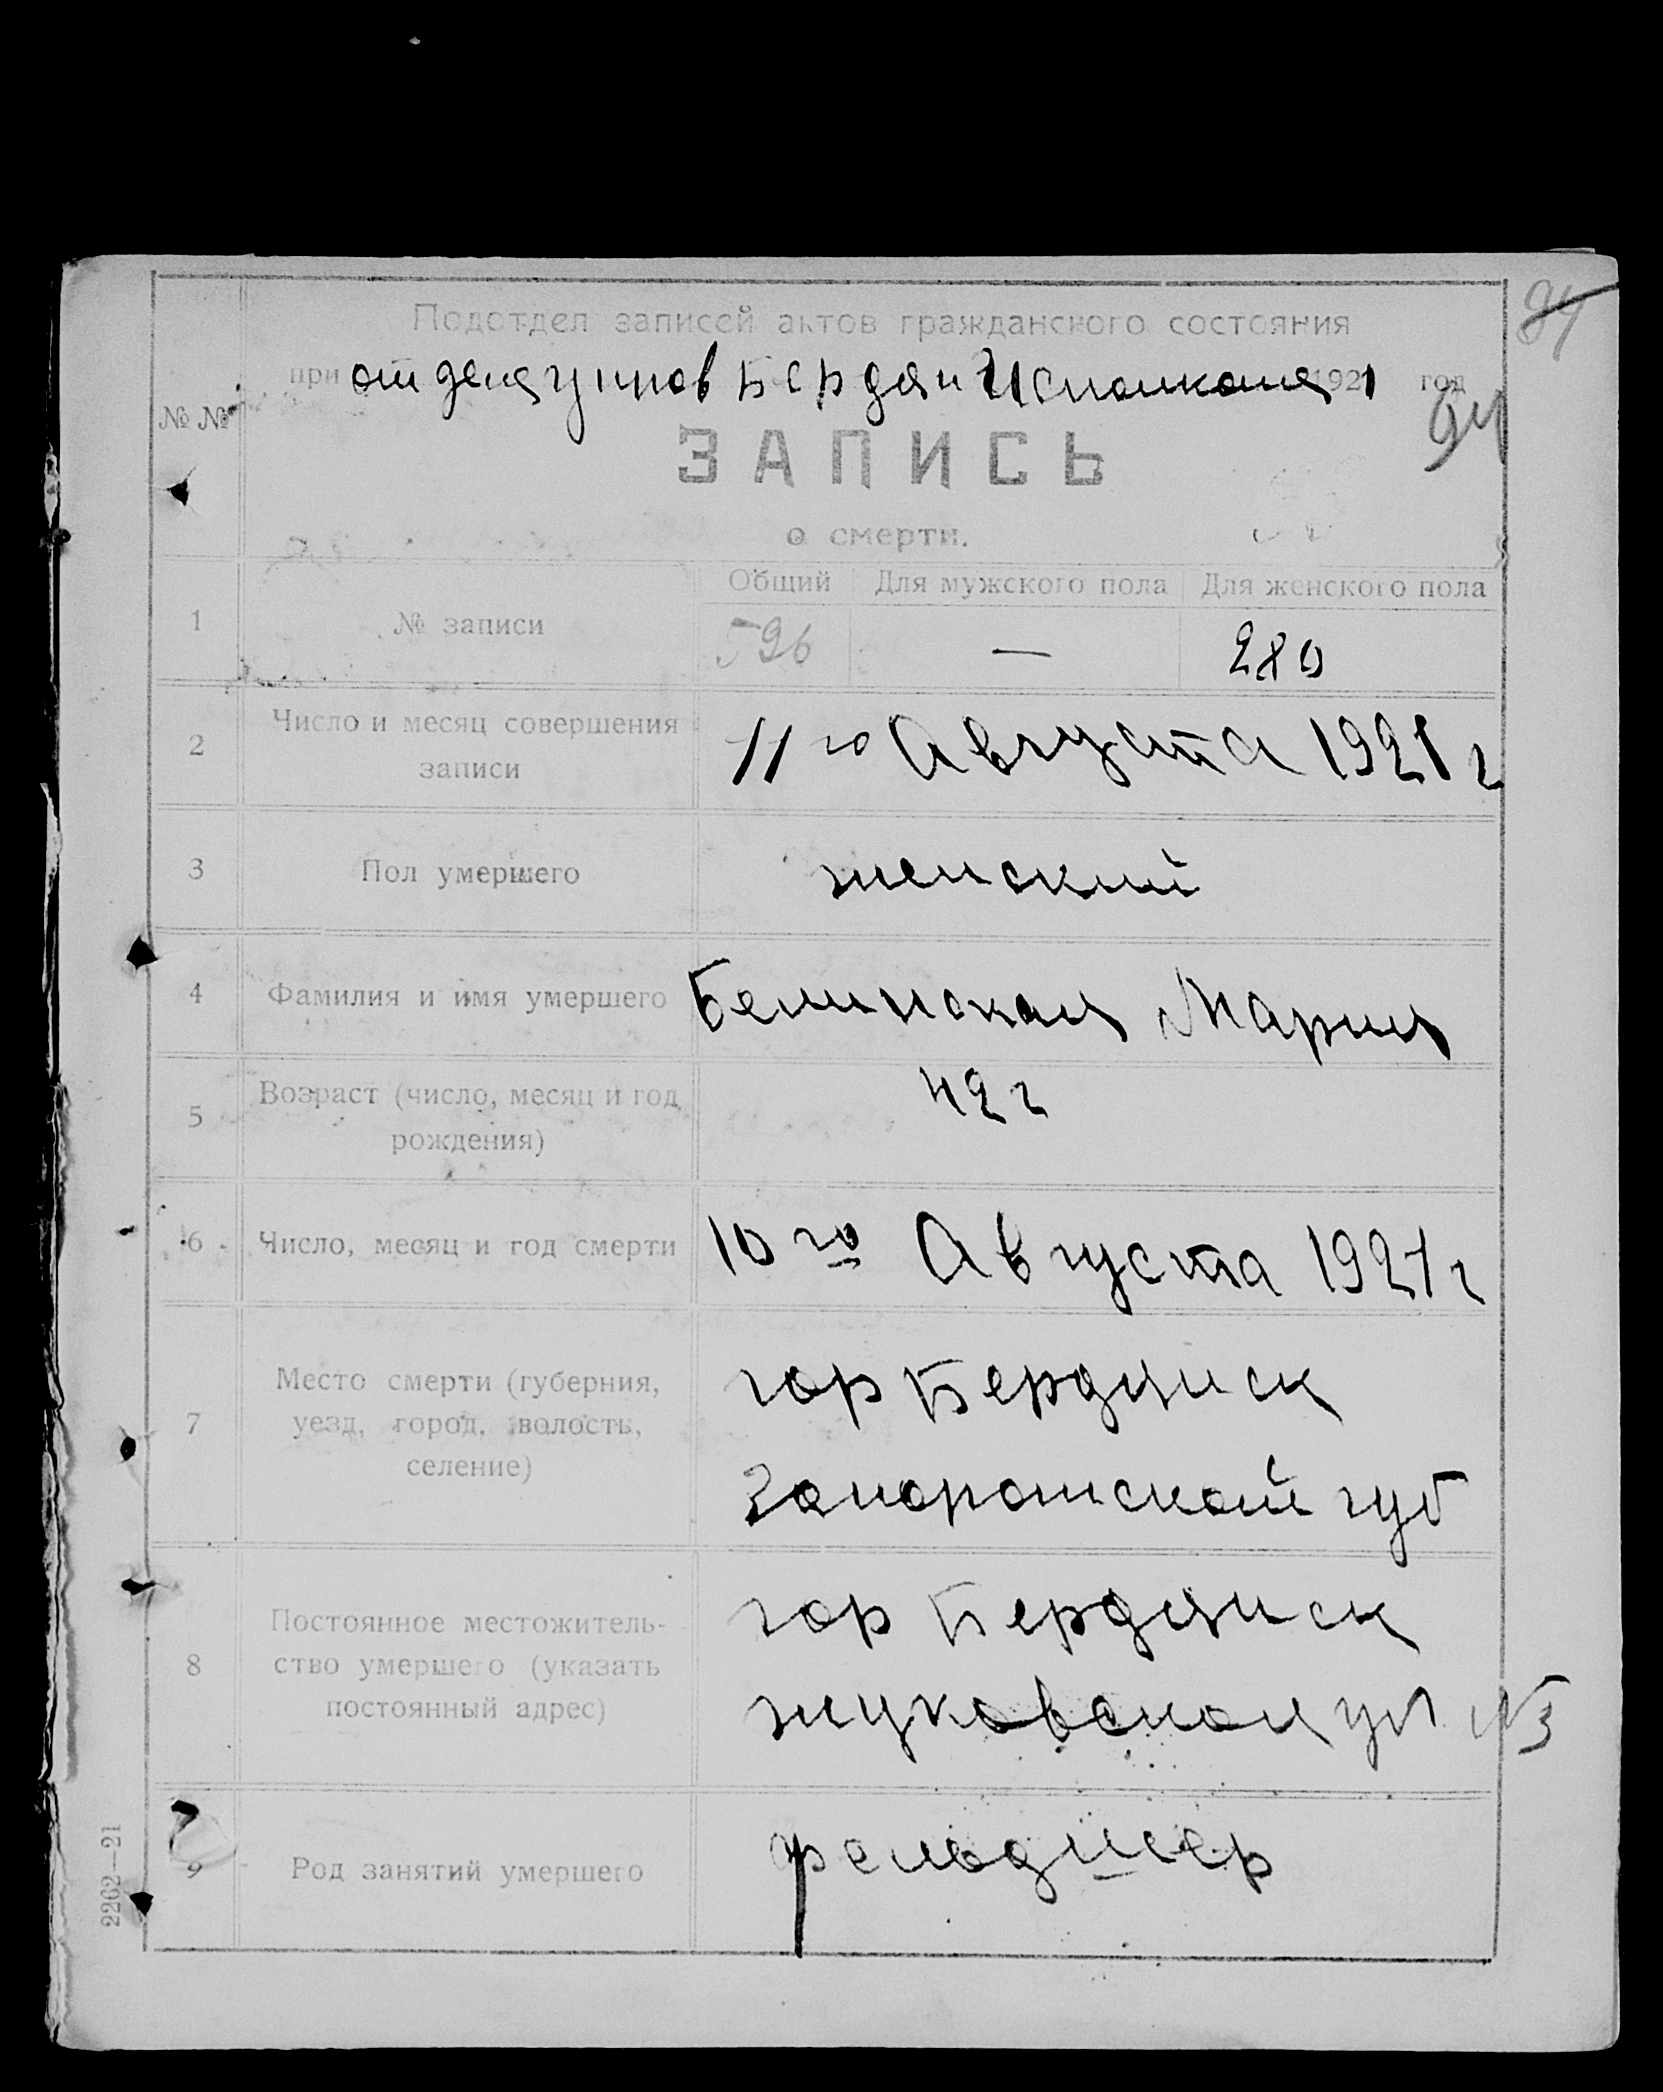 84
Подотдел записей актов гражданского состояния
при отделе упров Бердян Исполкома 1921 год
94
№ №
ЗАПИСЬ
о смерти.
Общий Для мужского пола Для женского пола
1 № записи 596 — 280
2 Число и месяц совершения
записи
11го Августа 1921 г
3 Пол умершего женский
4 Фамилия и имя умершего Белинская Мария
5 Возраст (число, месяц и год
рождения)
42 г
6 Число, месяц и год смерти 10го Августа 1921 г
7 Место смерти (губерния,
уезд, город, волость,
селение)
гор Бердянск
Запорожской губ
8 Постоянное местожитель-
ство умершего (указать
постоянный адрес)
гор Бердянск
жуковская ул №3
9 Род занятий умершего фельдшер
2262—21